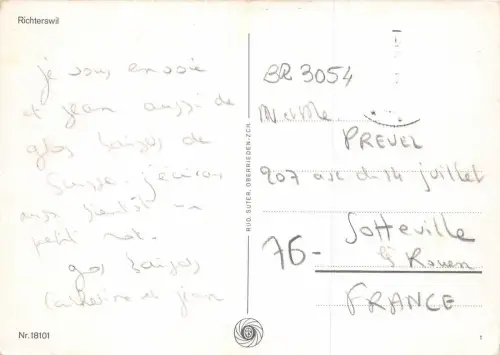 Richterswil
je vous envoie
et jean aussi de
gros baisers de
Suisse. j'écrirai
aussi bientôt un
petit mot.
gros baisers
Catherine et jean
Nr. 18101
RUD. SUTER, OBERRIEDEN-ZCH.
BR 3054
M et Me
PREVEL
907 ave du 14 juillet
76-
Sotteville
lès Rouen
FRANCE
1